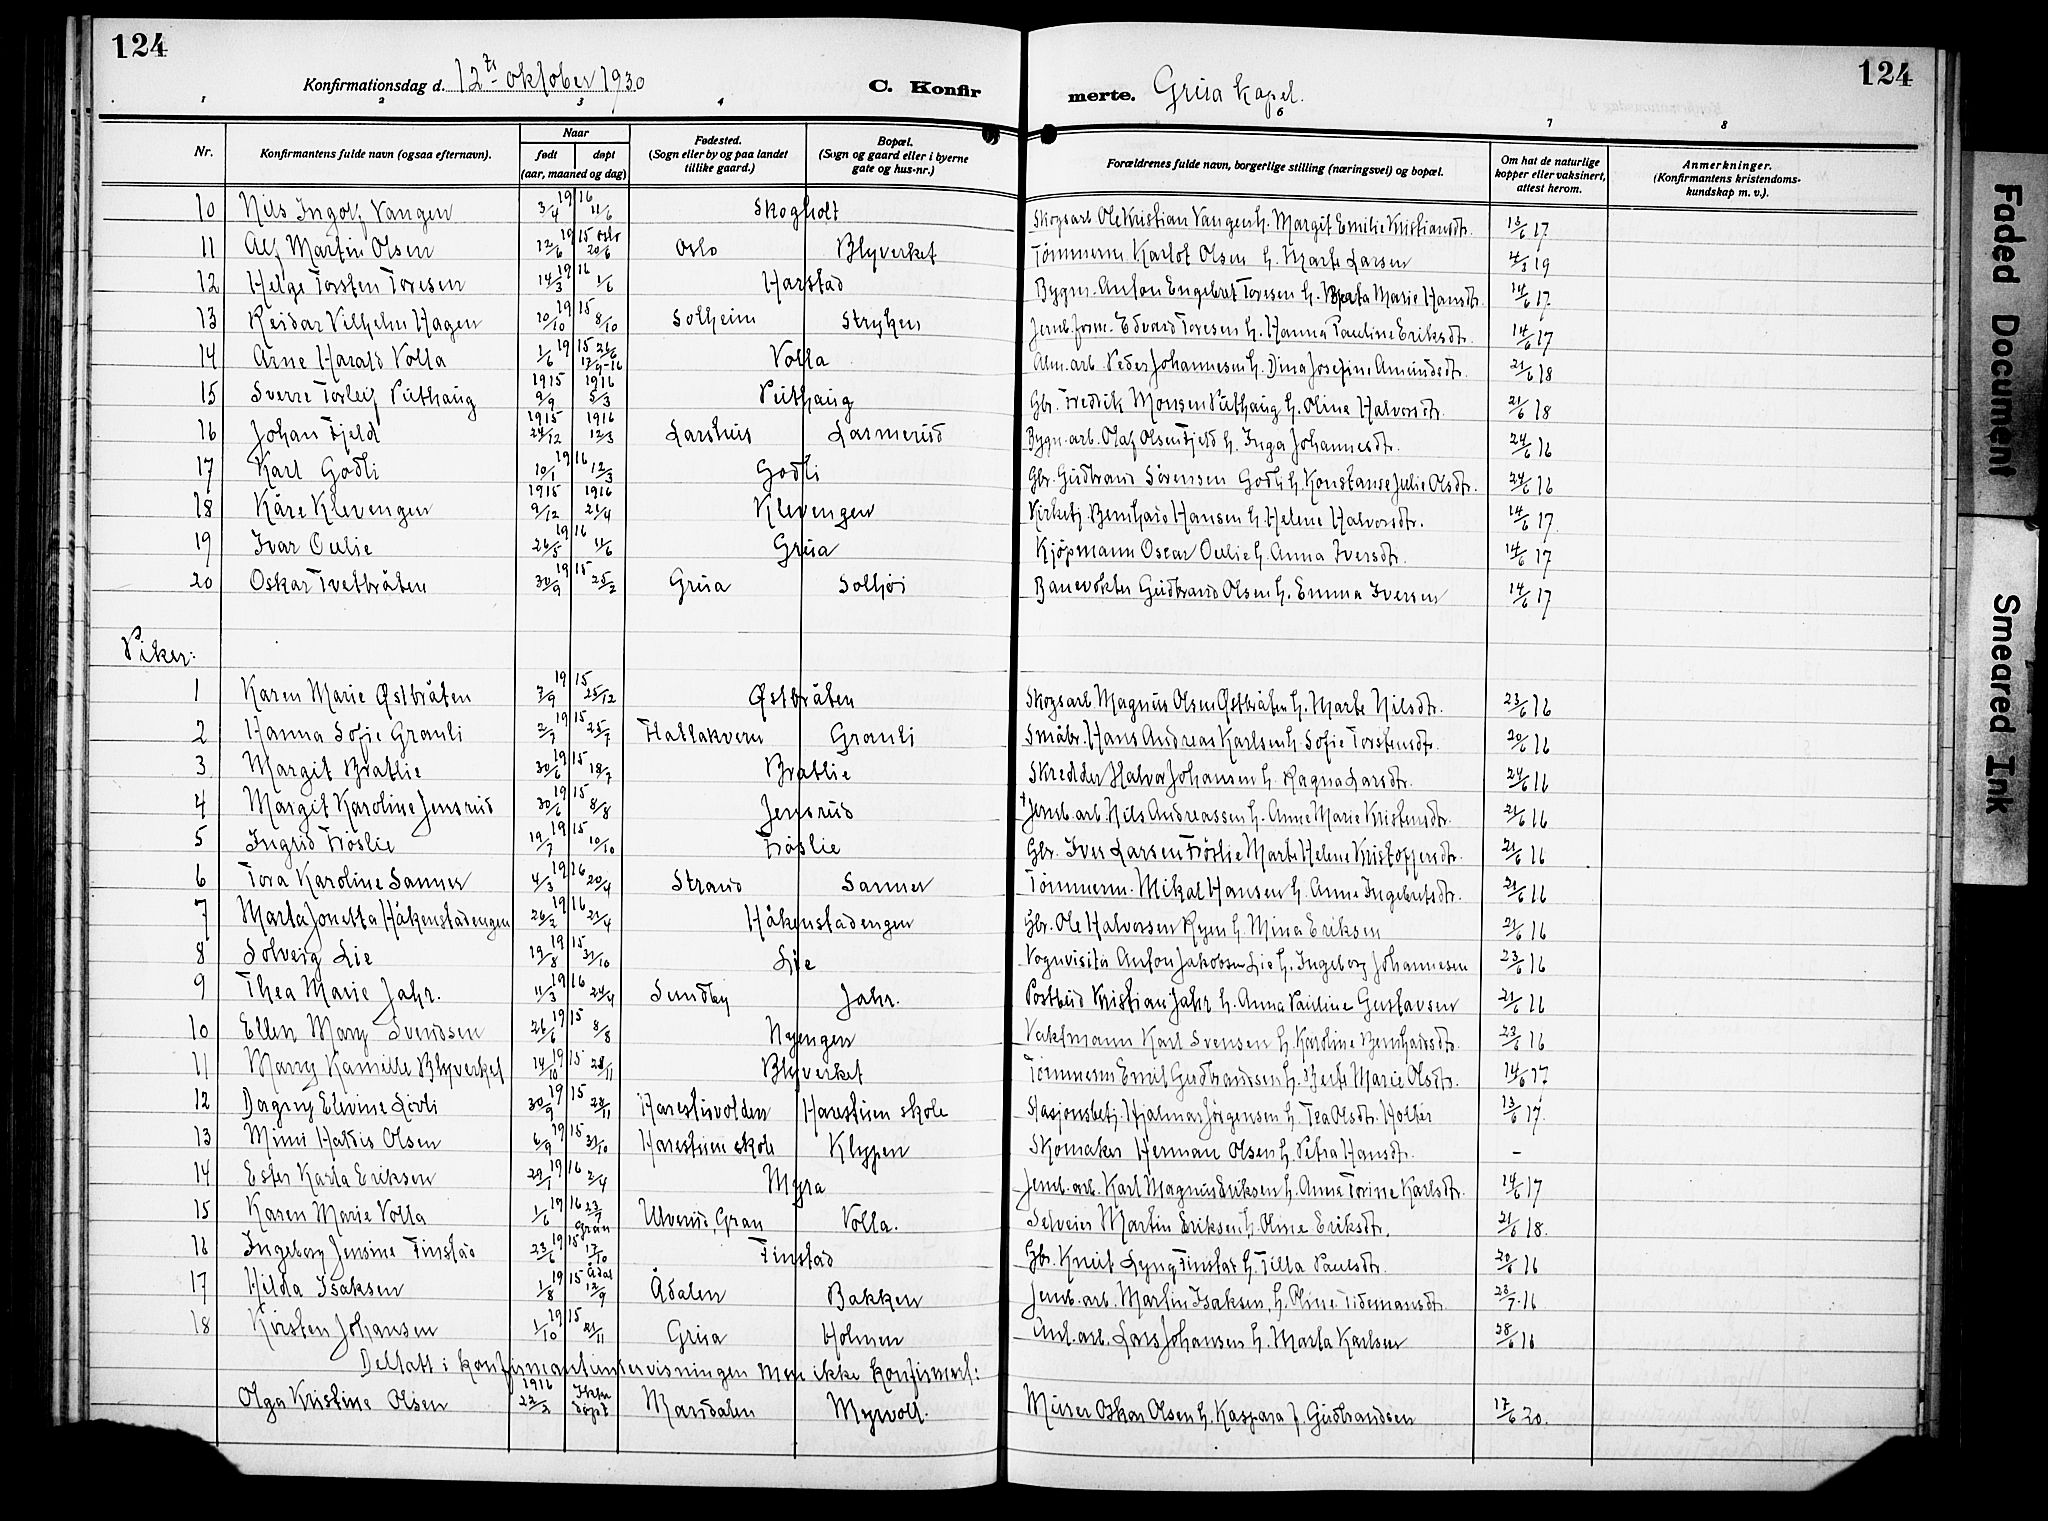 124
Konfirmationsdag d. 12te oktober 1930 C. Konfirmerte. Grua kapel. 124
1 2 3 4 5 6 7 8
Nr. Konfirmantens fulde navn (ogsaa efternavn). Naar født døpt (aar, maaned og dag) Fødested. (Sogn eller by og paa landet tillike gaard.) Bopæl. (Sogn og gaard eller i byerne gate og hus-nr.) Forældrenes fulde navn, borgerlige stilling (næringsvei) og bopæl. Om hat de naturlige kopper eller vaksinert, attest herom. Anmerkninger. (Konfirmantens kristendomskundskap m. v.).
10 Nils Ingolf Vangen 3/4 1916 11/6 Skogholt Skogsarb. Ole Kristian Vangen h. Margit Emilie Kristiansdtr. 13/6 17
11 Alf Martin Olsen 12/6 1915 Oslo 20/6 Oslo Blyverket Tømmerm. Karlot Olsen h. Marte Larsen 4/3 19
12 Helge Torsten Toresen 14/3 1916 1/6 Harstad Bygm. Anton Engebret Toresen h. Berta Marie Hansdtr. 14/6 17
13 Reidar Vilhelm Hagen 10/10 1915 8/10 Solheim Stryken Jernb.form. Edvard Toresen h. Hanna Pauline Eriksdtr. 14/6 17
14 Arne Harald Volla 1/6 1915 Volla Alm. arb. Peder Johannesen h. Dina Josefine Amundsdtr. 21/6 18
15 Sverre Torleif Puthaug 1915 9/9 1916 5/3 Puthaug Gbr. Fredrik Monsen Puthaug h. Olina Halvorsdtr. 21/6 18
16 Johan Fjeld 1915 24/12 1916 12/3 Larshus Lasmerud Bygn.arb. Olaf Olsen Fjeld h. Inga Johannesdtr. 24/6 16
17 Karl Godli 10/1 1916 12/3 Godli Gbr. Gudbrand Sørensen Godli h. Konstanse Julie Olsdtr. 24/6 16
18 Kåre Klevengen 1915 9/12 1916 21/4 Klevengen Kirketj. Bernhard Hansen h. Helene Halvorsdtr. 14/6 17.
19 Ivar Oulie 26/5 1916 11/6 Grua Kjøpmann Oscar Oulie h. Anna Iversdtr. 14/6 17
20 Oskar Tvetbråten 30/9 1915 25/2 Grua Solhøi Banevokter Gudbrand Olsen h. Emma Iversen 14/6 17
Piker:
1 Karen Marie Østbråten 7/9 1915 25/12 Østbråten Skogsarb. Magnus Olsen Østbråten h. Marte Nilsdtr. 23/6 16
2 Hanna Sofie Granli 2/7 1915 25/7 Hatlakvern Granli Småbr. Hans Andreas Karlsen h. Sofie Torstensdtr. 20/6 16
3 Margit Bratlie 30/6 1915 18/7 Bratlie Skredder Halvor Johansen h. Ragna Larsdtr. 24/6 16
4 Margit Karoline Jensrud 30/6 1915 8/8 Jensrud † Jernb.arb. Nils Andreassen h. Anne Marie Kristensdtr. 21/6 16
5 Ingrid Frøslie 19/7 1915 10/10 Frøslie Gbr. Iver Larsen Frøslie Marte Helene Kristoffersdtr. 21/6 16
6 Tora Karoline Sanner 4/3 1916 20/4 Strand Sanner Tømmerm. Mikal Hansen h. Anne Ingebretsdtr. 21/6 16
7 Marta Jonetta Håkenstadengen 26/2 1916 21/4 Håkenstadengen Gbr. Ole Halvorsen Ryen h. Mina Eriksen 21/6 16
8 Solveig Lie 19/8 1915 31/10 Lie Vognvisitør Anton Jakobsen Lie h. Ingeborg Johannesen 23/6 16
9 Thea Marie Jahr. 11/3 1916 24/4 Sundby Jahr. Postbud Kristian Jahr h. Anna Pauline Gustavsen 21/6 16
10 Ellen Mary Svendsen 26/6 1915 8/8 Nyengen Vaktmann Karl Svensen h. Karoline Bernhardsdtr. 23/6 16
11 Marry Kamille Blyverket 14/10 1915 28/11 Blyverket Tømmerm Emil Gudbrandsen h. Berte Marie Olsdtr. 14/6 17
12 Dagny Elevine Lovli 30/9 1915 28/11 Harestuvolden Harestuen skole Stasjonsbetj. Hjalmar Jørgensen h. Tea Olsdtr. Holter 13/6 17.
13 Mimi Haldis Olsen 6/9 1915 31/10 Harestuen skole Klypen Skomaker Herman Olsen h. Petra Hansdtr. -
14 Ester Karla Eriksen 29/1 1916 2/4 Myra Jernb. arb. Karl Magnus Eriksen h. Anna Torine Karlsdtr. 14/6 17
15 Karen Marie Volla 1/6 1916 23/7 Gran Ulverud, Gran Volla. Selveier Martin Eriksen h. Oline Eriksdtr. 21/6 18.
16 Ingeborg Jensine Finstad 23/6 1915 17/10 Finstad Gbr. Knut Lyng Finstad h. Tilla Paulsdtr. 20/6 16
17 Hilda Isaksen 1/8 1915 Ådal 12/9 Ådalen Bakken Jernb. arb. Martin Isaksen, h. Oline Tidemansdtr. 28/7 16
18 Kirsten Johansen 1/10 1915 21/11 Grua Holmen arb. Lars Johansen h. Marta Karlsen 28/6 16
Deltatt i konfirmantundervisningen men ikke konfirmert:
Olga Kristine Olsen 1916 22/3 Ikke døpt Marsdalen Myrvoll. Murer Oskar Olsen h. Kaspara f. Gudbrandsen 17/6 20.
Faded Document
Smeared Ink